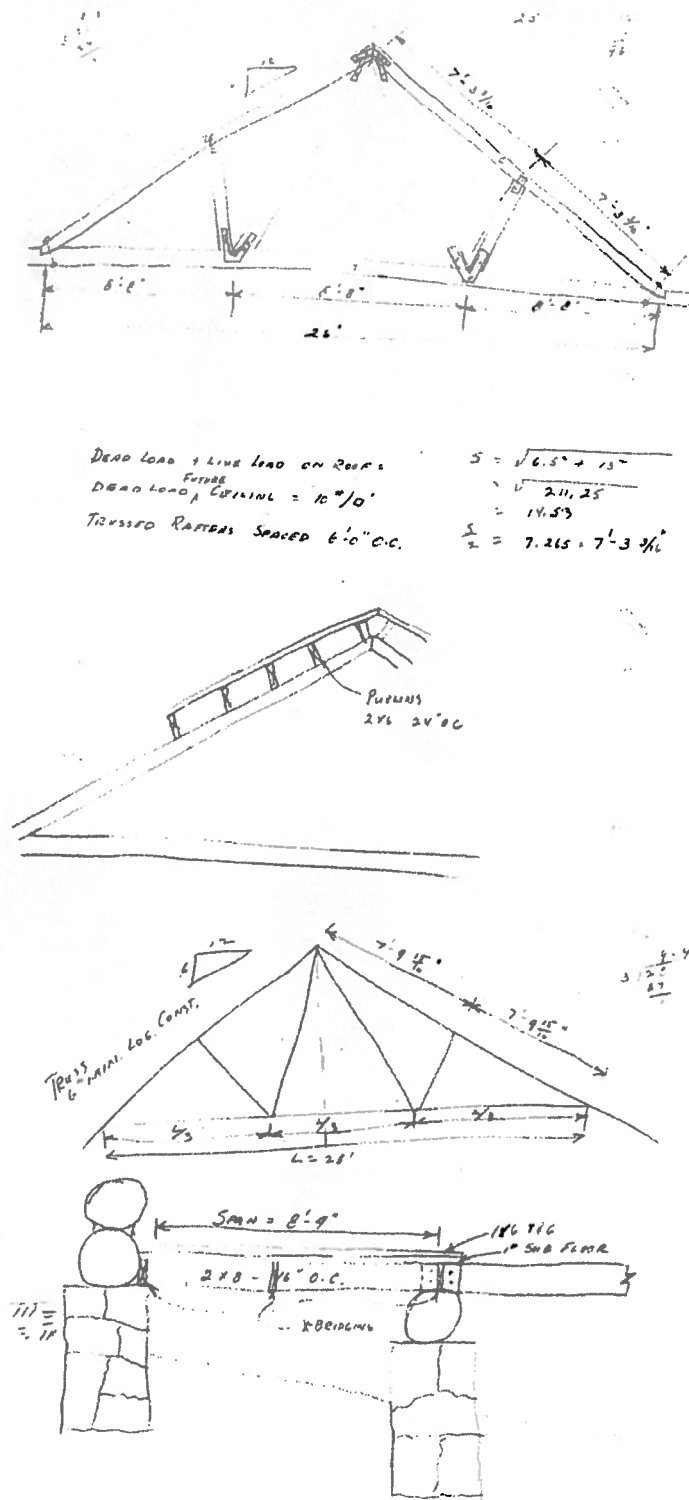 25'
12
7'-3 3/16
7'-3 3/16"
8'-8"
8'-8"
8'-8"
26'
DEAD LOAD + LIVE LOAD ON ROOF =
DEAD LOAD FUTURE CEILING = 10#/□'
TRUSSED RAFTERS SPACED 6'-0" O.C.
S = √6.5² + 13²
= √211.25
= 14.53
S/2 = 7.265 = 7'-3 3/16"
PURLINS
2x6 24" OC
12
6
7'-9 15/16"
7'-9 15/16"
TRUSS
6" MINI. LOG. CONST.
L/3
L/3
L/3
L = 28'
SPAN = 8'-9"
1x6 T&G
1" SUB FLOOR
2 x 8 - 16" O.C.
X BRIDGING